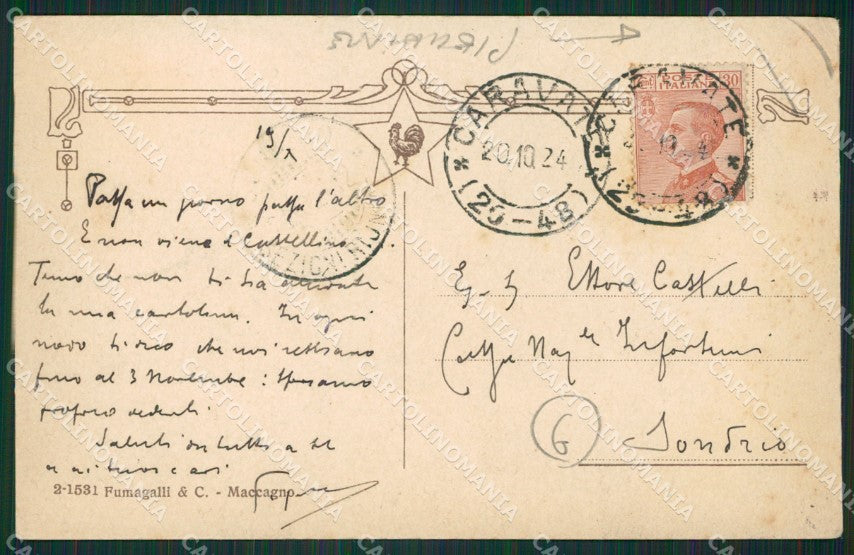 CARAVATE
20.10.24
(20-48)
POSTE ITALIANE
30
19/X
Passa un giorno passa l'altro
E non viene il Castellino.
Temo che non ti sia arrivata
la mia cartolina. In ogni
modo ti dico che noi restiamo
fino al 3 Novembre: speriamo
proprio vederti.
Saluti da tutti a te
e ai tuoi cari
Eg. Sg Ettore Castelli
Cassa Naz.le Infortuni
Sondrio
G
2-1531 Fumagalli & C. - Maccagno.
CARTOLINOMANIA